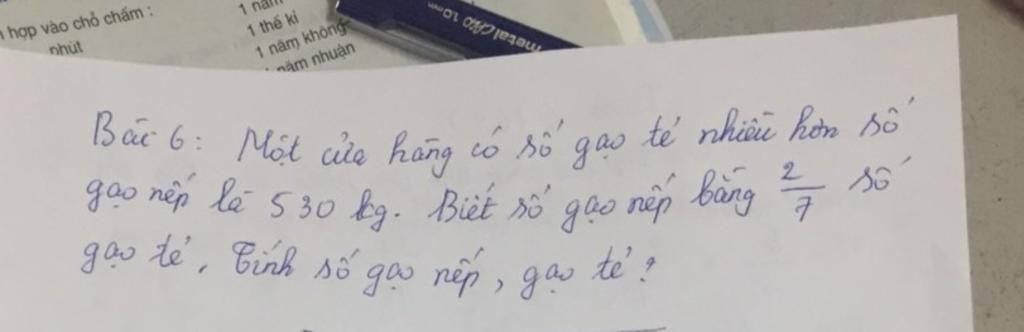 1 năm
hợp vào chỗ chấm :
1 thế kỉ
phút
1 năm không
năm nhuận
metallic 1.0mm
Bài 6: Một cửa hàng có số gạo tẻ nhiều hơn số
gạo nếp là 530 kg. Biết số gạo nếp bằng 2/7 số
gạo tẻ. Tính số gạo nếp, gạo tẻ?